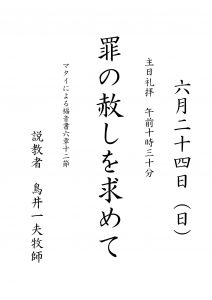 六月二十四日（日）
主日礼拝　午前十時三十分
罪の赦しを求めて
マタイによる福音書六章十二節
説教者　鳥井一夫牧師